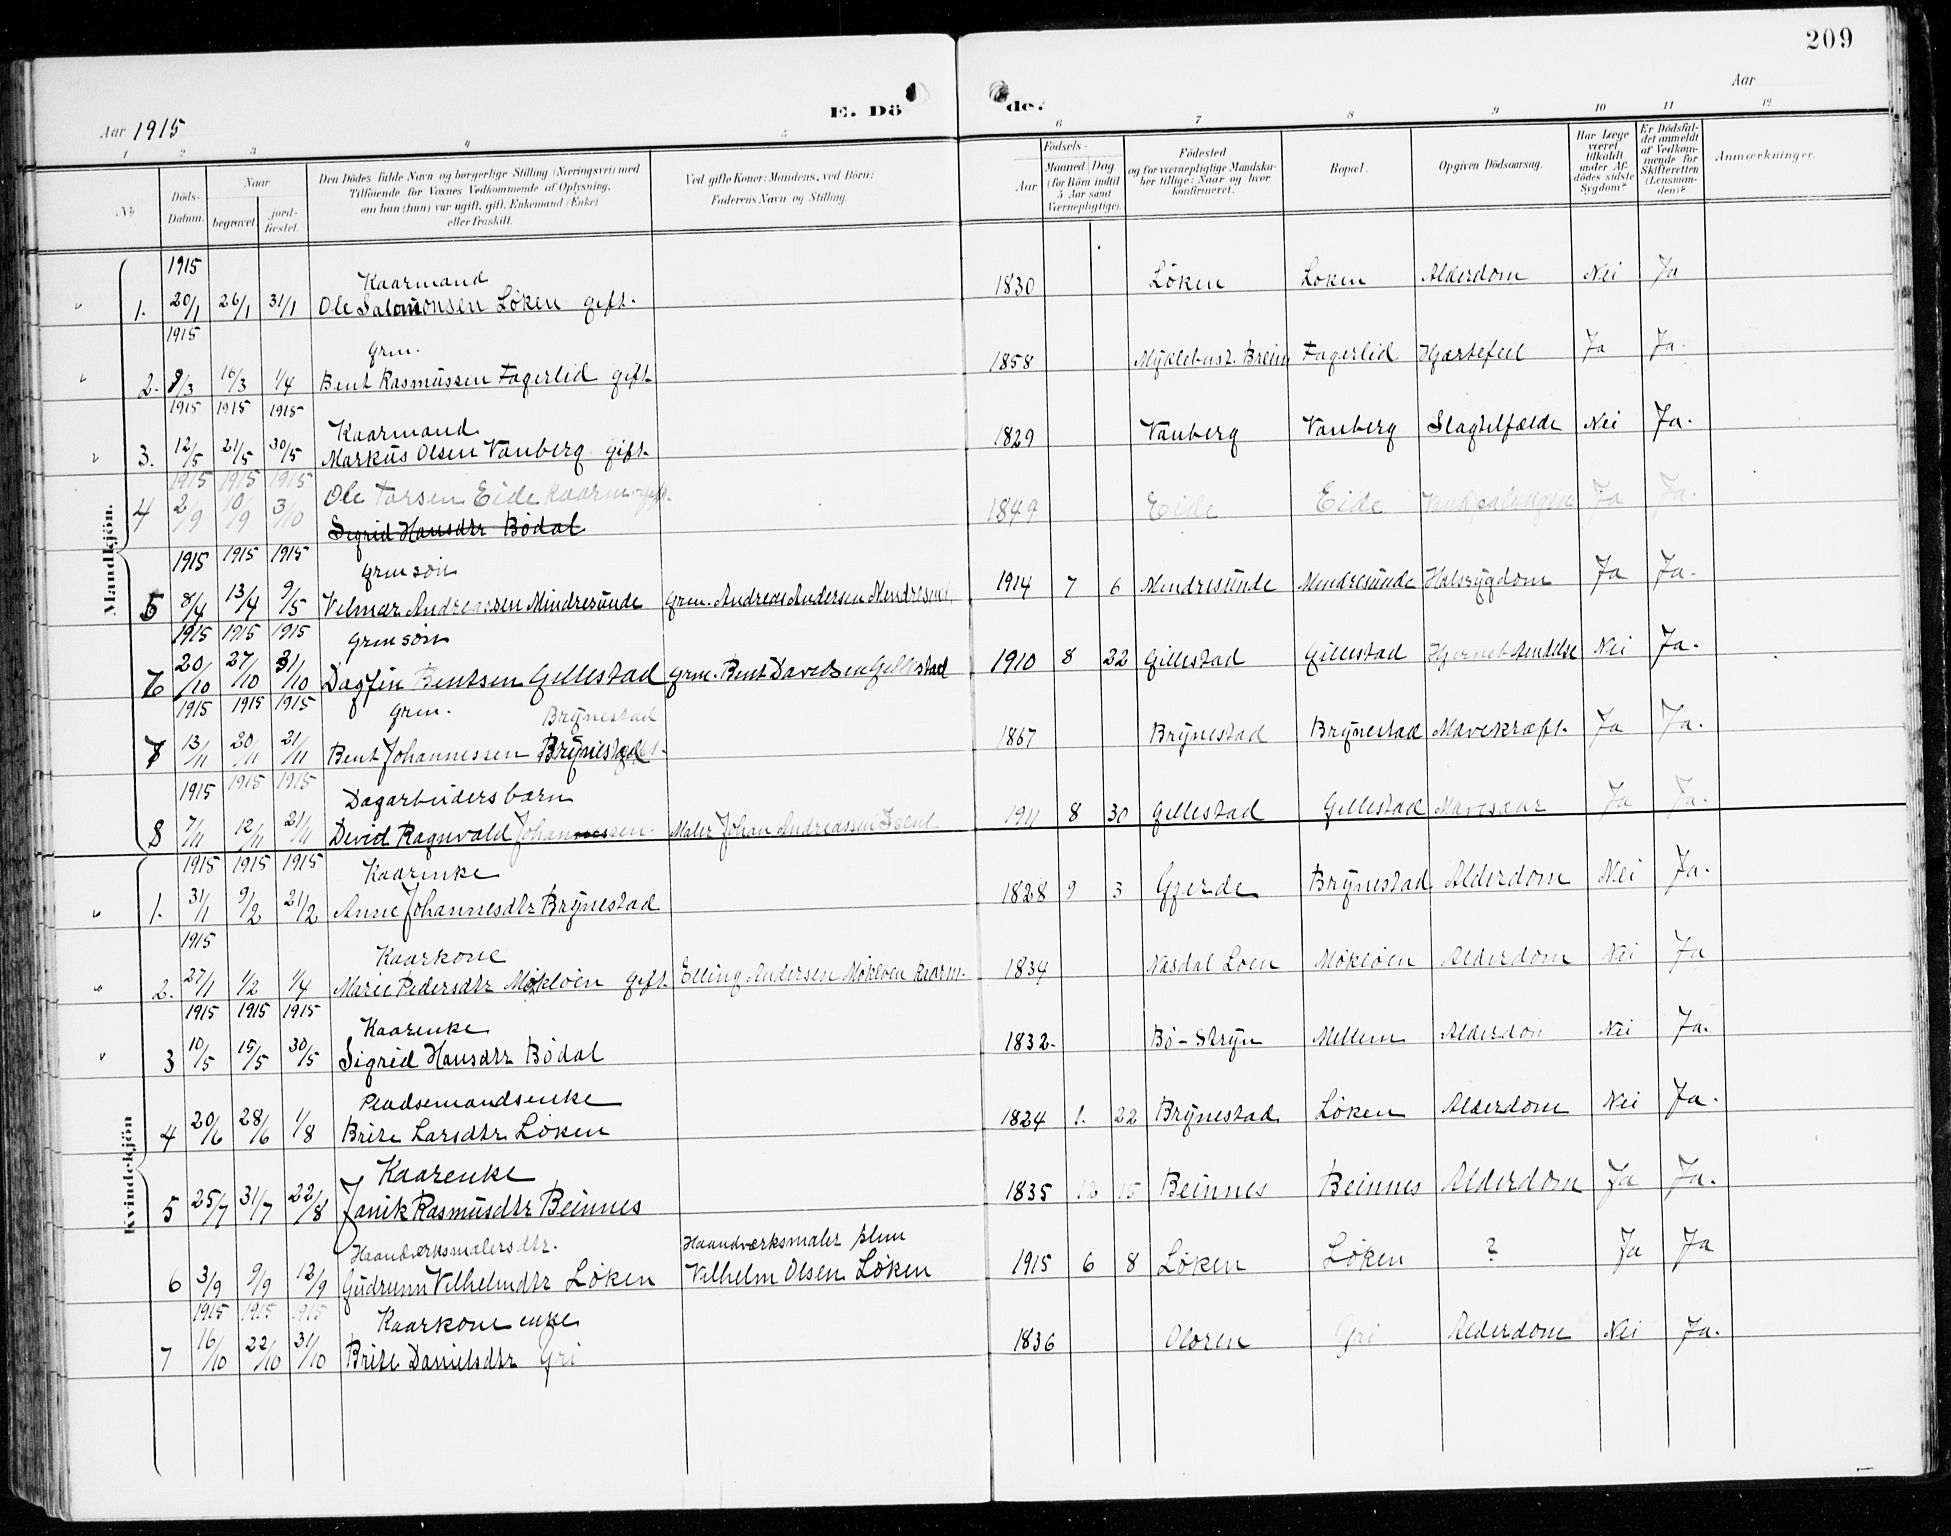 209
Aar 1915 E. Dö de. Aar
1 2 3 4 5 6 7 8 9 10 11 12
No Döds-Datum. Naar begravet. jordfæstet. Den Dödes fulde Navn og borgerlige Stilling (Næringsvei) med Tilföiende for Voxnes Vedkommende af Oplysning, om han (hun) var ugift, gift, Enkemand (Enke) eller fraskilt. Ved gifte Koner: Mandens, ved Börn: Faderens Navn og Stilling. Födsels- Aar Maaned. Dag (for Börn indtil 5 Aar samt Værnepligtige). Födested og for værnepligtige Mandskaber tillige: Naar og hvor konfirmeret. Bopæl. Opgiven Dödsaarsag. Har Læge været tilkaldt under Afdödes sidste Sygdom? Er Dödsfaldet anmeldt af Vedkommende for Skifteretten (Lensmanden)? Anmærkninger.
Mandkjön.
1915 Kaarmand
1. 20/1 26/1 31/1 Ole Salomonsen Løken gift. 1830 Løken Løken Alderdom Nei Ja
1915 Grm.
2. 9/3 16/3 1/4 Bent Rasmussen Fagerlid gift. 1858 Myklebust. Breim Fagerlid Hjertefeil Ja Ja.
1915 1915 1915 Kaarmand
3. 12/5 21/5 30/5 Markus Olsen Vanberg gift. 1829 Vanberg Vanberg Slagtilfælde Nei Ja.
1915 1915 1915
4 2/9 10/9 3/10 Ole Torsen Eide kaarm. gift. 1849 Eide Eide Ja Ja.
Sigrid Hansdtr Bødal
1915 1915 1915 Grm søn
5 8/4 13/4 9/5 Vilmar Andreassen Mindresunde Grm. Andreas Andersen 1914 7 6 Mendresunde Mendresunde Halssygdom Ja Ja.
1915 1915 1915 Grm søn
6 20/10 27/10 31/10 Dagfin Bentsen Gillestad Grm. Bent Davidsen Gillestad 1910 8 22 Gillestad Gillestad Nei Ja.
1915 1915 1915 Grm. Brynestad
7 13/11 20/11 21/11 Bent Johannessen Brynestad 1867 Brynestad Brynestad Mavekræft. Ja Ja.
1915 1915 1915 Dagarbeidersbarn
8 7/11 12/11 21/11 David Ragnvald Johannessen. Maler Johan Andreassen 1911 8 30 Gillestad Gillestad Mavesaar Ja Ja.
Kvindekjön
1915 1915 1915 Kaarenke
1. 31/1 9/2 21/2 Anne Johannesdtr Brynestad 1828 9 3 Gjerde Brynestad Alderdom Nei Ja.
1915 Kaarkone
2. 27/1 1/2 1/4 Marie Pedersdtr Mokløen gift. Elling Andersen Mokløen kaarm. 1834 Nasdal Loen Mokløen Alderdom Nei Ja
1915 1915 1915 Kaarenke
3 10/5 15/5 30/5 Sigrid Hansdtr Bødal 1832. Bø - Stryn Mellem Alderdom Nei Ja.
Pladsemandsenke
4 20/6 28/6 1/8 Brite Larsdtr Løken 1824 1. 22 Brynestad Løken Alderdom Nei Ja.
Kaarenke
5 25/7 31/7 22/8 Janik Rasmusdtr Beinnes 1835 12 15 Beinnes Beinnes Alderdom Ja Ja.
Haandverksmalersdtr. Haandværksmaler
6 3/9 9/9 12/9 Gudrunn Vilhelmdtr Løken Vilhelm Olsen Løken 1915 6 8 Løken Løken ? Ja Ja
1915 1915 1915 Kaarkone enke
7 16/10 22/10 31/10 Brite Danielsdtr Gri 1836 Oloren Gri Alderdom Nei Ja.